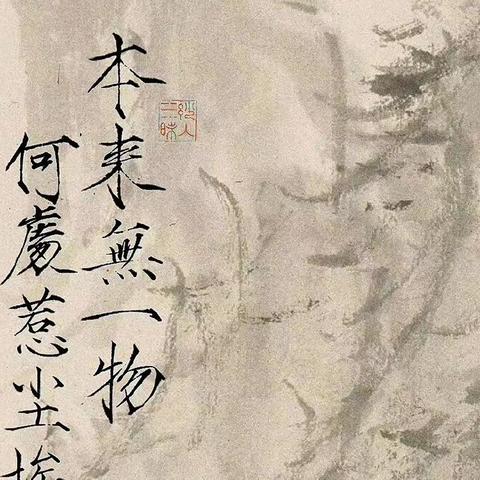 本来無一物
何處惹尘埃
三昧